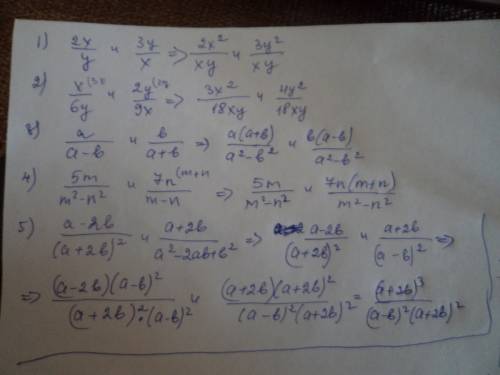 1) 2x/y и 3y/x => 2x²/xy и 3y²/xy
2) x^(3x)/6y и 2y^(2y)/9x => 3x²/18xy и 4y²/18xy
3) a/(a-b) и b/(a+b) => a(a+b)/(a²-b²) и b(a-b)/(a²-b²)
4) 5m/(m²-n²) и 7n^(m+n/(m-n) => 5m/(m²-n²) и 7n(m+n)/(m²-n²)
5) (a-2b)/(a+2b)² и (a+2b)/(a²-2ab+b²) => (a-2b)/(a+2b)² и (a+2b)/(a-b)² =>
=> (a-2b)(a-b)²/(a+2b)²·(a-b)² и (a+2b)(a+2b)²/(a-b)²(a+2b)² = (a+2b)³/(a-b)²(a+2b)²